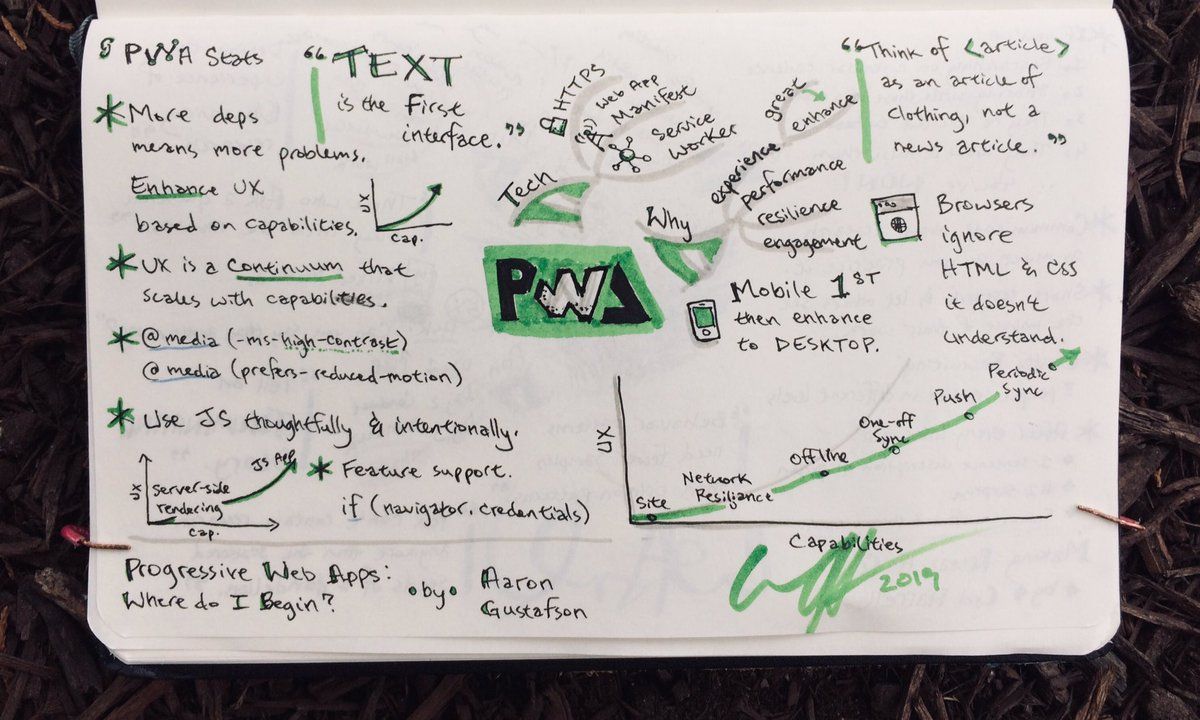 PWA Stats
* More deps
means more problems.
Enhance UX
based on capabilities.
UX
Cap.
* UX is a continuum that
scales with capabilities.
* @media (-ms-high-contrast)
@media (prefers-reduced-motion)
* Use JS thoughtfully & intentionally.
UX
Server-side
rendering
JS App
Cap.
* Feature support.
if (navigator.credentials)
“TEXT
is the First
interface.”
Tech
HTTPS
Web App
Manifest
Service
Worker
PWA
Why
experience
great
enhance
performance
resilience
engagement
“Think of <article>
as an article of
clothing, not a
news article.”
Browsers
ignore
HTML & CSS
it doesn't
understand.
Mobile 1ST
then enhance
to DESKTOP.
UX
Site
Network
Resiliance
Offline
One-off
Sync
Push
Periodic
Sync
Capabilities
Progressive Web Apps:
Where do I Begin?
•by•
Aaron
Gustafson
2019